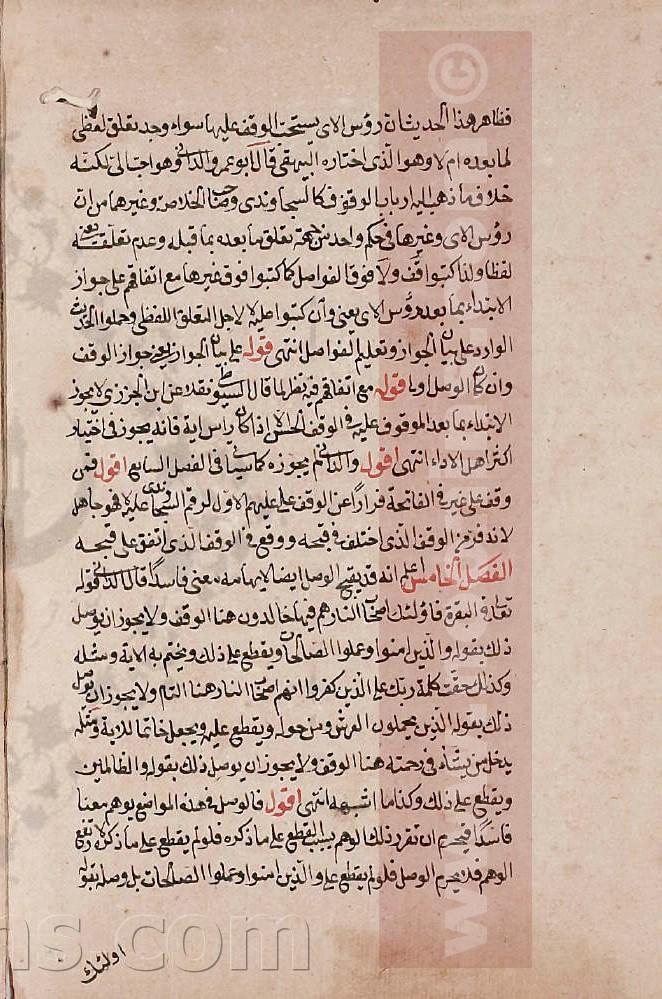 فظاهر هذا الحديث ان رؤس الاى يستحب الوقف عليها سواء وجد تعلق لفظى
لما بعده ام لا وهو الذى اختاره البيهقى قال ابو عمرو الدانى وهو احب الىّ لكنه
خلاف ما ذهب اليه ارباب الوقوف كالسجاوندى وصاحب الخلاصة وغيرهما من ان
رؤس الاى وغيرها فى حكم واحد من جهة تعلق ما بعده بما قبله وعدم تعلقه يعنى
لفظا ولذا كتبوا قف ولا فوق الفواصل كما كتبوا فوق غيرها مع اتفاقهم على جواز
الابتداء بما بعد رؤس الاى يعنى وان كتبوا عليه لا لاجل التعلق اللفظى وحملوا الحديث
الوارد على بيان الجواز وتعليم الفواصل انتهى قوله على بيان الجواز يعنى جواز الوقف
وان كان الوصل اولى قوله مع اتفاقهم فيه نظر لما قال السيوطى نقلا عن ابن الجزرى لا يجوز
الابتداء بما بعد الموقوف عليه فى الوقف الحسن الا اذا كان راس اية فانه يجوز فى اختيار
اكثر اهل الاداء انتهى اقول والدانى لم يجوزه كما سياتى فى الفصل السابع اقول فمن
وقف على غير فى الفاتحة فرارا عن الوقف على عليهم الاول لرقم السجاوندى عليه لا فهو جاهل
لانه فر من الوقف الذى اختلف فى قبحه ووقع فى الوقف الذى اتفق على قبحه
الفصل الخامس اعلم انه قد يقبح الوصل ايضا لايهامه معنى فاسدا قال الدانى قوله
تعالى فى البقرة فاولئك اصحاب النار هم فيها خالدون هنا الوقف ولا يجوز ان يوصل
ذلك بقوله والذين امنوا وعملوا الصالحات ويقطع على ذلك ويختم به الاية ومثله
وكذلك حقت كلمة ربك على الذين كفروا انهم اصحاب النار هنا التام ولا يجوز ان يوصل
ذلك بقوله الذين يحملون العرش ومن حوله ويقطع عليه ويجعل خاتما للاية ومثله
يدخل من يشاء فى رحمته هنا الوقف ولا يجوز ان يوصل ذلك بقوله والظالمين
ويقطع على ذلك وكذا ما اشبهه انتهى اقول فالوصل فى هذه المواضع يوهم معنا
فاسدا فيحرم ان تقرر ذلك الوهم بسبب القطع على ما ذكره فلو لم يقطع على ما ذكره لارتفع
الوهم فلا يحرم الوصل فلو لم يقطع على والذين امنوا وعملوا الصالحات بل وصله بقوله
اولئك